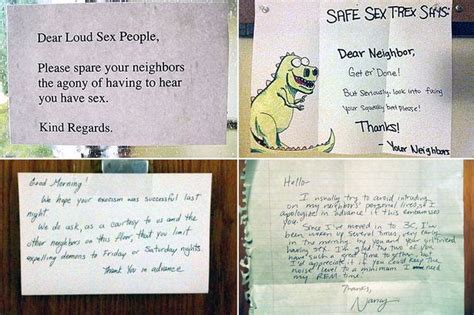 Dear Loud Sex People,
Please spare your neighbors
the agony of having to hear
you have sex.
Kind Regards.
SAFE SEX TREX SAYS:
Dear Neighbor,
Get er' Done!
But seriously, look into fixing
your squeaky bed please!
Thanks!
- Your Neighbors
Good Morning!
We hope your exorcism was successful last
night.
We do ask, as a courtesy to us and the
other neighbors on this floor, that you limit
expelling demons to Friday or Saturday nights.
Thank you in advance.
Hello-
I usually try to avoid intruding
on my neighbor's personal lives, so I
apologize in advance if this embarrasses
you.
Since I've moved in to 3C, I've
been woken up several times very early
in the morning by you and your girlfriend
having sex. I'm glad the two of you
have such a great time together, but
I'd appreciate it if you could keep the
noise level to a minimum. I need
my REM time!
Thanks,
Nancy